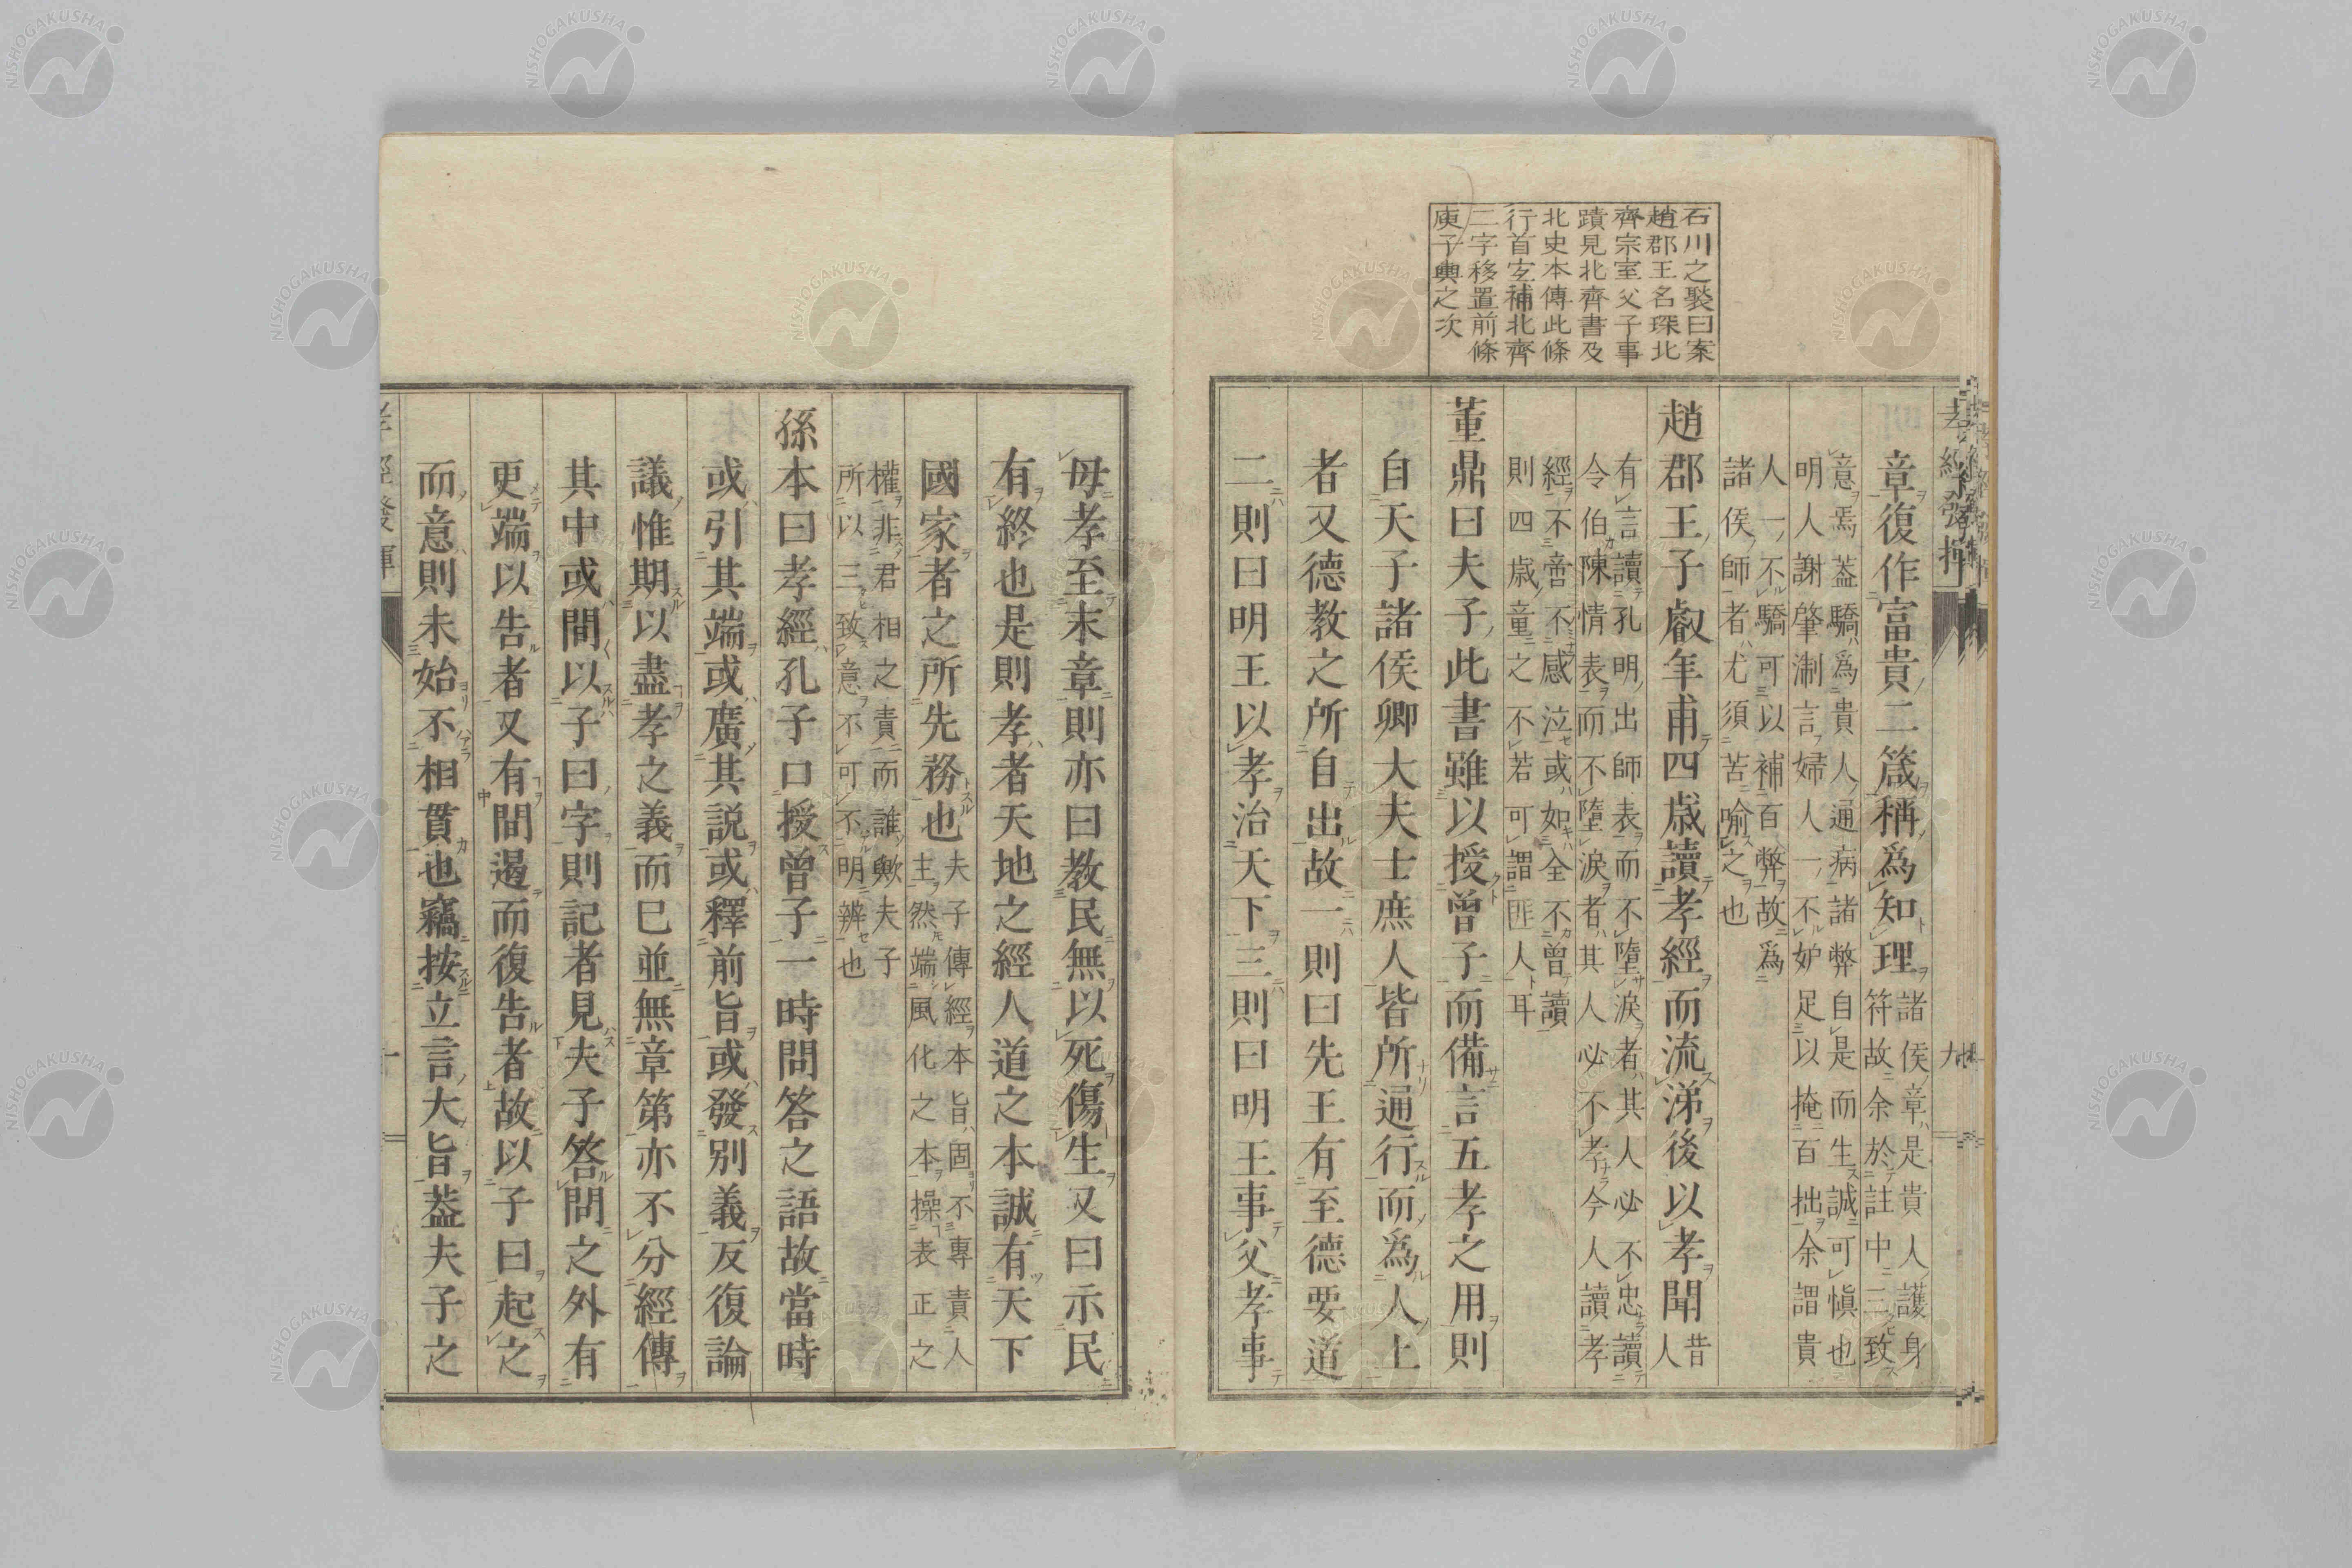 石川之褧曰案
趙郡王名琛北
齊宗室父子事
蹟見北齊書及
北史本傳此條
行首宐補北齊
二字移置前條
庾子輿之次
章復作富貴二箴稱爲知理諸侯章是貴人護身
符故余於註中三致
意焉葢驕爲貴人通病諸弊自是而生誠可愼也
明人謝肇淛言婦人一不妒足以掩百拙余謂貴
人一不驕可以補百弊故爲
諸侯師者尤須苦喻之也
趙郡王子叡年甫四歳讀孝經而流涕後以孝聞昔人
有言讀孔明出師表而不墮淚者其人必不忠讀
令伯陳情表而不墮淚者其人必不孝今人讀孝
經不啻不感泣或如全不曾讀
則四歳童之不若可謂匪人耳
董鼎曰夫子此書雖以授曾子而備言五孝之用則
自天子諸侯卿大夫士庶人皆所通行而爲人上
者又德教之所自出故一則曰先王有至德要道
二則曰明王以孝治天下三則曰明王事父孝事
母孝至末章則亦曰教民無以死傷生又曰示民
有終也是則孝者天地之經人道之本誠有天下
國家者之所先務也夫子傳經本旨固不專責人
主然端風化之本操表正之
權非君相之責而誰歟夫子
所以三致意不可不明辨也
孫本曰孝經孔子口授曾子一時問答之語故當時
或引其端或廣其説或釋前旨或發別義反復論
議惟期以盡孝之義而已並無章第亦不分經傳
其中或間以子曰字則記者見夫子答問之外有
更端以告者又有間遏而復告者故以子曰起之
而意則未始不相貫也竊按立言大旨葢夫子之